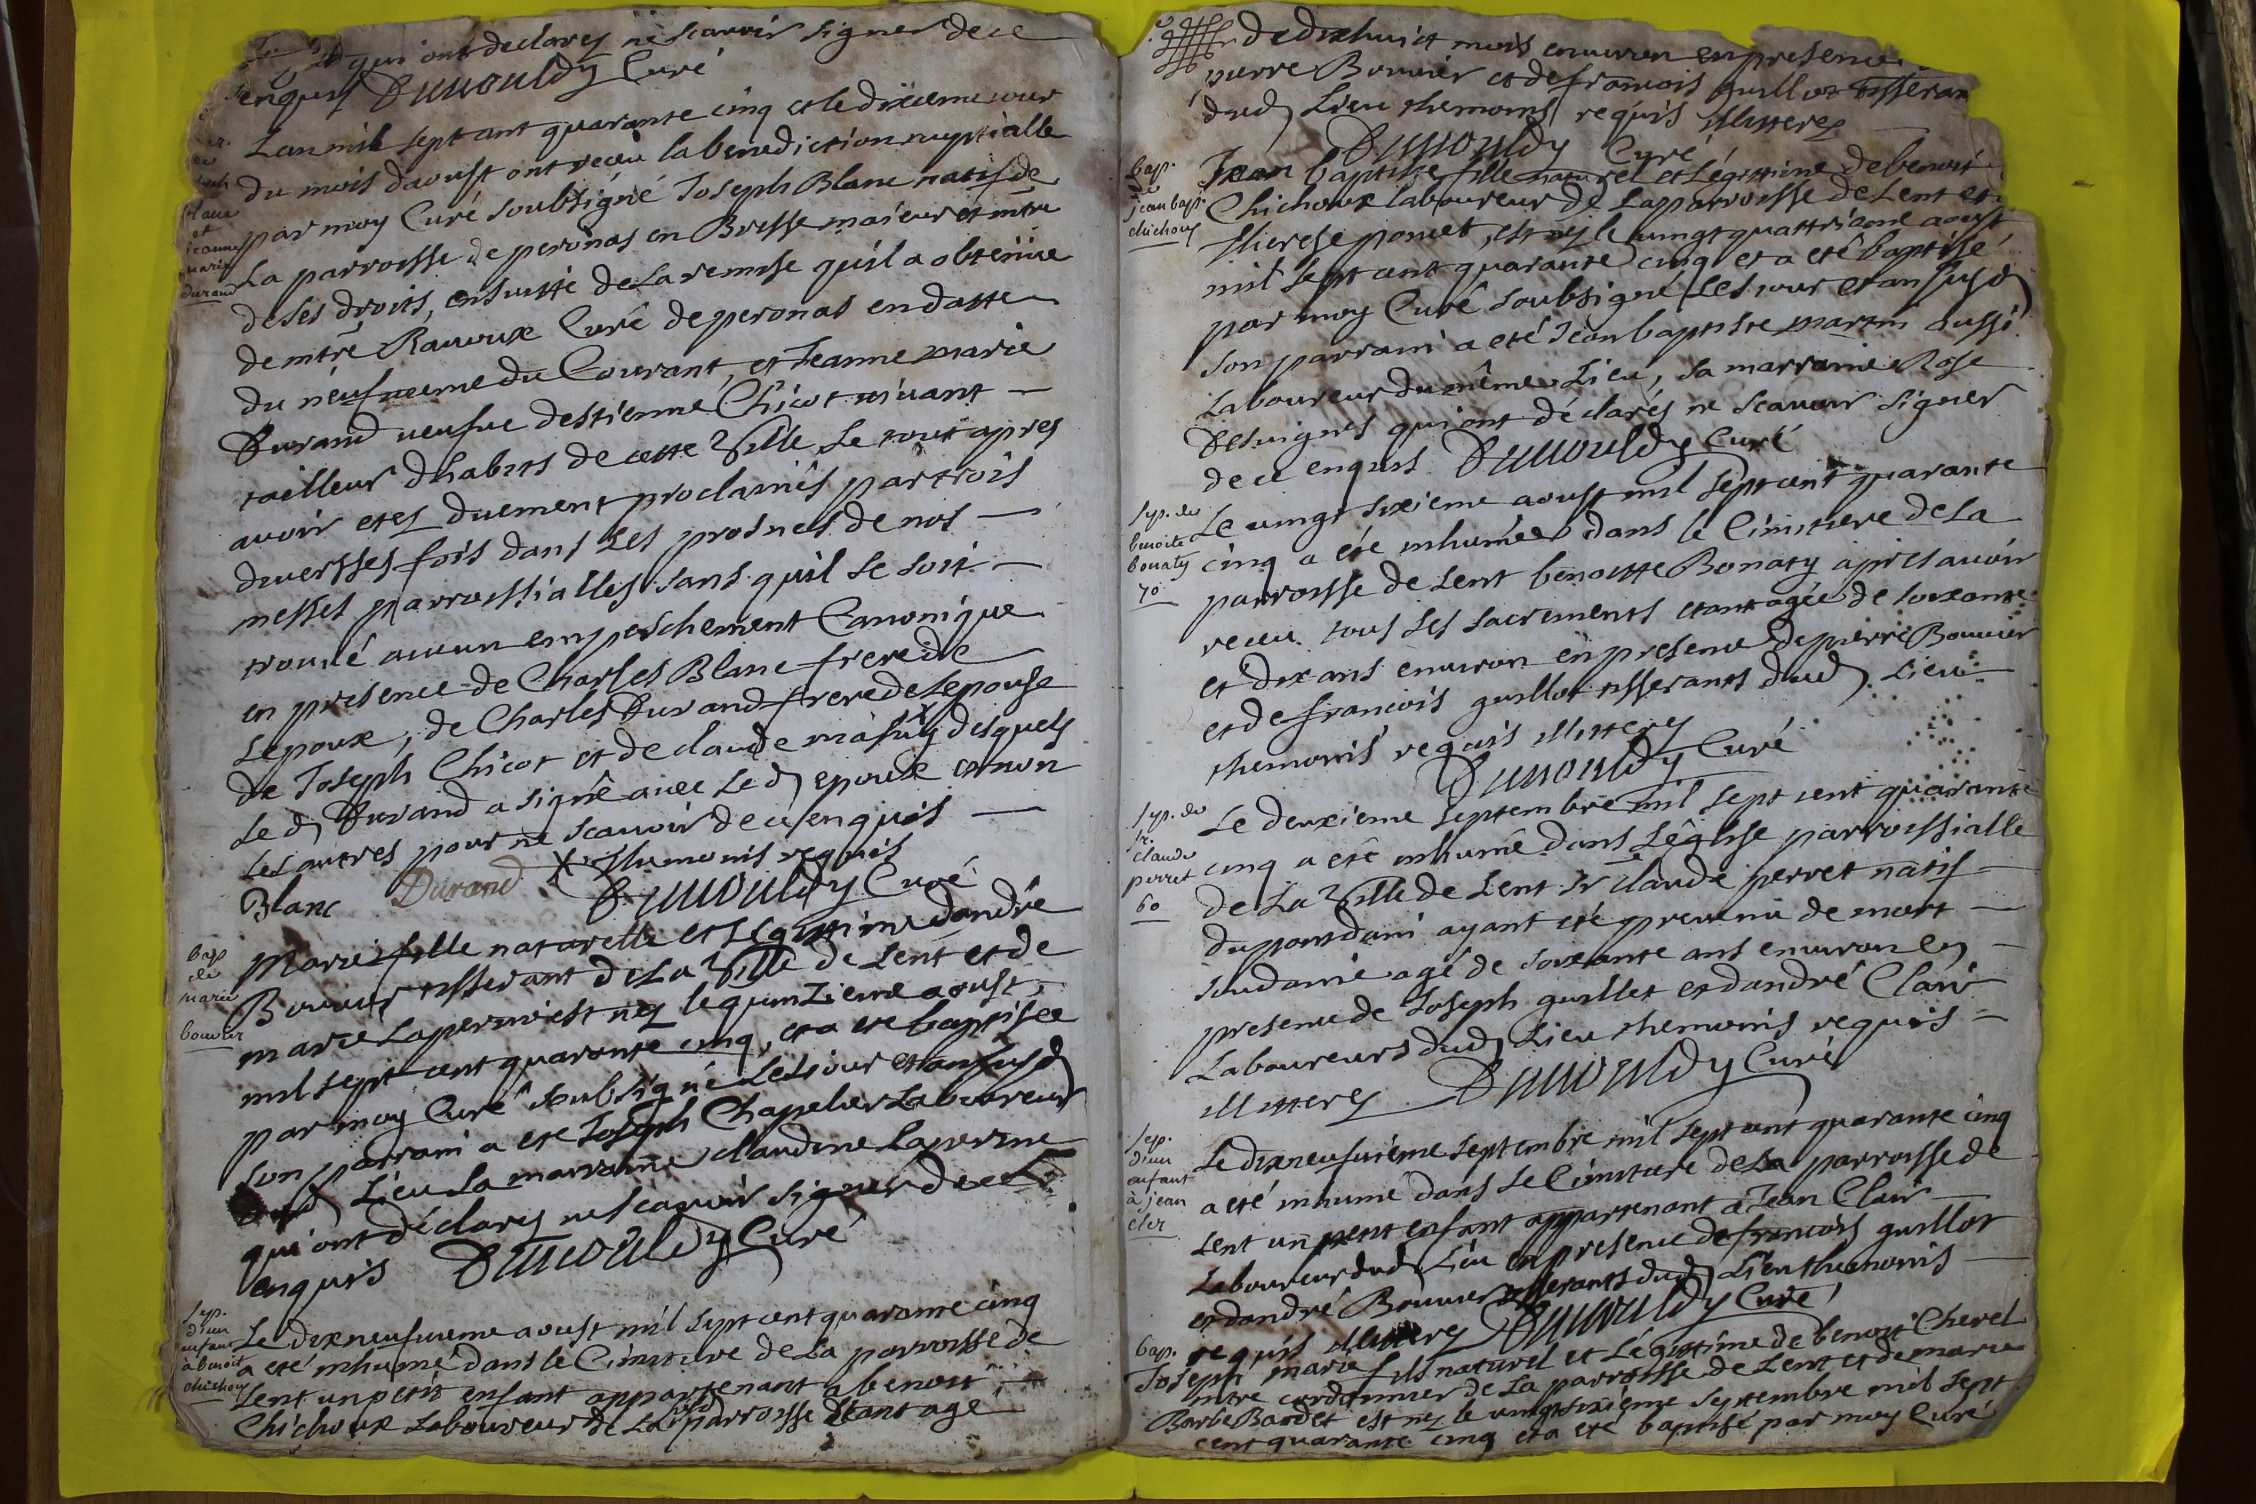 qui ont declarez ne scavoir signer de ce
enquis Dunouldy Curé
Lan mil sept cent quarante cinq et le dixieme jour
du mois daoust ont receu la benediction nuptialle
par moy Curé soubsigné Joseph Blanc natif de
La parroisse de peronas en Bresse maieur et mtre
de ses droits, ensuitte de La remise quil a obtenüe
de mtre Ravoux Curé de peronas en datte
du neufvieme du Courant, et Jeanne marie
Durand veufve destienne Chicot vivant
tailleur dhabits de cette Ville Le tout apres
avoir etez duement proclamés par trois
diversses fois dans Les prosnes de nos
messes parroissialles sans quil se soit
trouvé aucun empeschement Canonique
en presence de Charles Blanc frere de
Lepoux, de Charles Durand frere de Lepouse
de Joseph Chicot et de claude desquels
Led Durand a signé avec Led epoux et non
les autres pour ne scavoir de ce enquis
Blanc Durand X themoins requis
Dunouldy Curé
bap
de
marie
bouvier
Marie fille naturelle et Legittime dandré
Bouvier tisserant de La Ville de Lent et de
marie Laperrine est néz le quinzieme aoust
mil sept cent quarante cinq, et a ete baptisee
par moy Curé soubsigné Les jour et an susd
son parrain a ete Joseph Chapelier Laboureur
dud Lieu La marraine claudine Laperrine
qui ont déclarez ne scavoir signer de ce
enquis Dunouldy Curé
sep.
d'un
enfant
à benoit
chichoux
Le dixneufvieme aoust mil sept cent quarante cinq
a eté inhumé dans le Cimitiere de La parroisse de
Lent un petit enfant appartenant a benoit
Chichoux Laboureur de La parroisse etant age
de dixhuict mois environ en presence
pierre Bouvier et de francois guillot tisseran
dud Lieu themoins requis illitterez
Dunouldy Curé
bap.
de
jean bap.
chichoux
Jean baptiste fils naturel et Légittime de benoit
Chichoux laboureur de La parroisse de Lent et
thierese poncet, est néz le vingt quattrieme aoust
mil sept cent quarante cinq et a eté baptisé
par moy Curé soubsigné Les jour et an susd
son parrain a eté Jean baptiste martin aussi
Laboureur du même Lieu, sa marraine Rose
Desvignes qui ont déclarés ne scavoir signer
de ce enquis Dunouldy Curé
sep. de
benoite
bonaty
70
Le vingt sixieme aoust mil sept cent quarante
cinq a ete inhumée dans le Cimitiere de La
parroisse de Lent benoitte Bonaty apres avoir
receu tous les sacrements etant agée de soixante
et dix ans environ en presence de pierre Bouvier
et de francois guillot tisserants dud Lieu
themoins requis illitterez
Dunouldy Curé
sep. de
sr.
claude
perret
60
Le deuxieme septembre mil sept cent quarante
cinq a eté inhumé dans Léglise parroissialle
de La Ville de Lent Sr claude perret natif
du pontdain ayant eté prevenu de mort
soudaine agé de soixante ans environ en
presence de Joseph guillet et dandré Clair
Laboureurs dud Lieu themoins requis
illitterez Dunouldy Curé
sep.
d'un
enfant
à jean
cler
Le dixneufvieme septembre mil sept cent quarante cinq
a eté inhumé dans Le Cimitiere de La parroisse de
Lent un petit enfant appartenant a Jean Clair
Laboureur dud Lieu en presence de francois guillot
et dandré Bouvier tisserants dud Lieu themoins
requis illitterez Dunouldy Curé
bap.
Joseph marie fils naturel et Légittime de benoit Cherel
mtre cordonnier de La parroisse de Lent et de marie
Barbe Bardet est néz le vingtsixiéme septembre mil sept
cent quarante cinq et a eté baptisé par moy Curé